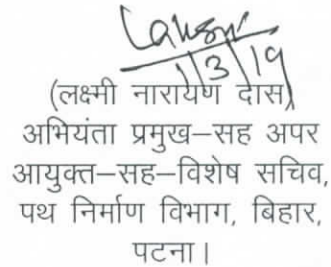 1/3/19
(लक्ष्मी नारायण दास)
अभियंता प्रमुख–सह अपर
आयुक्त–सह–विशेष सचिव,
पथ निर्माण विभाग, बिहार,
पटना।